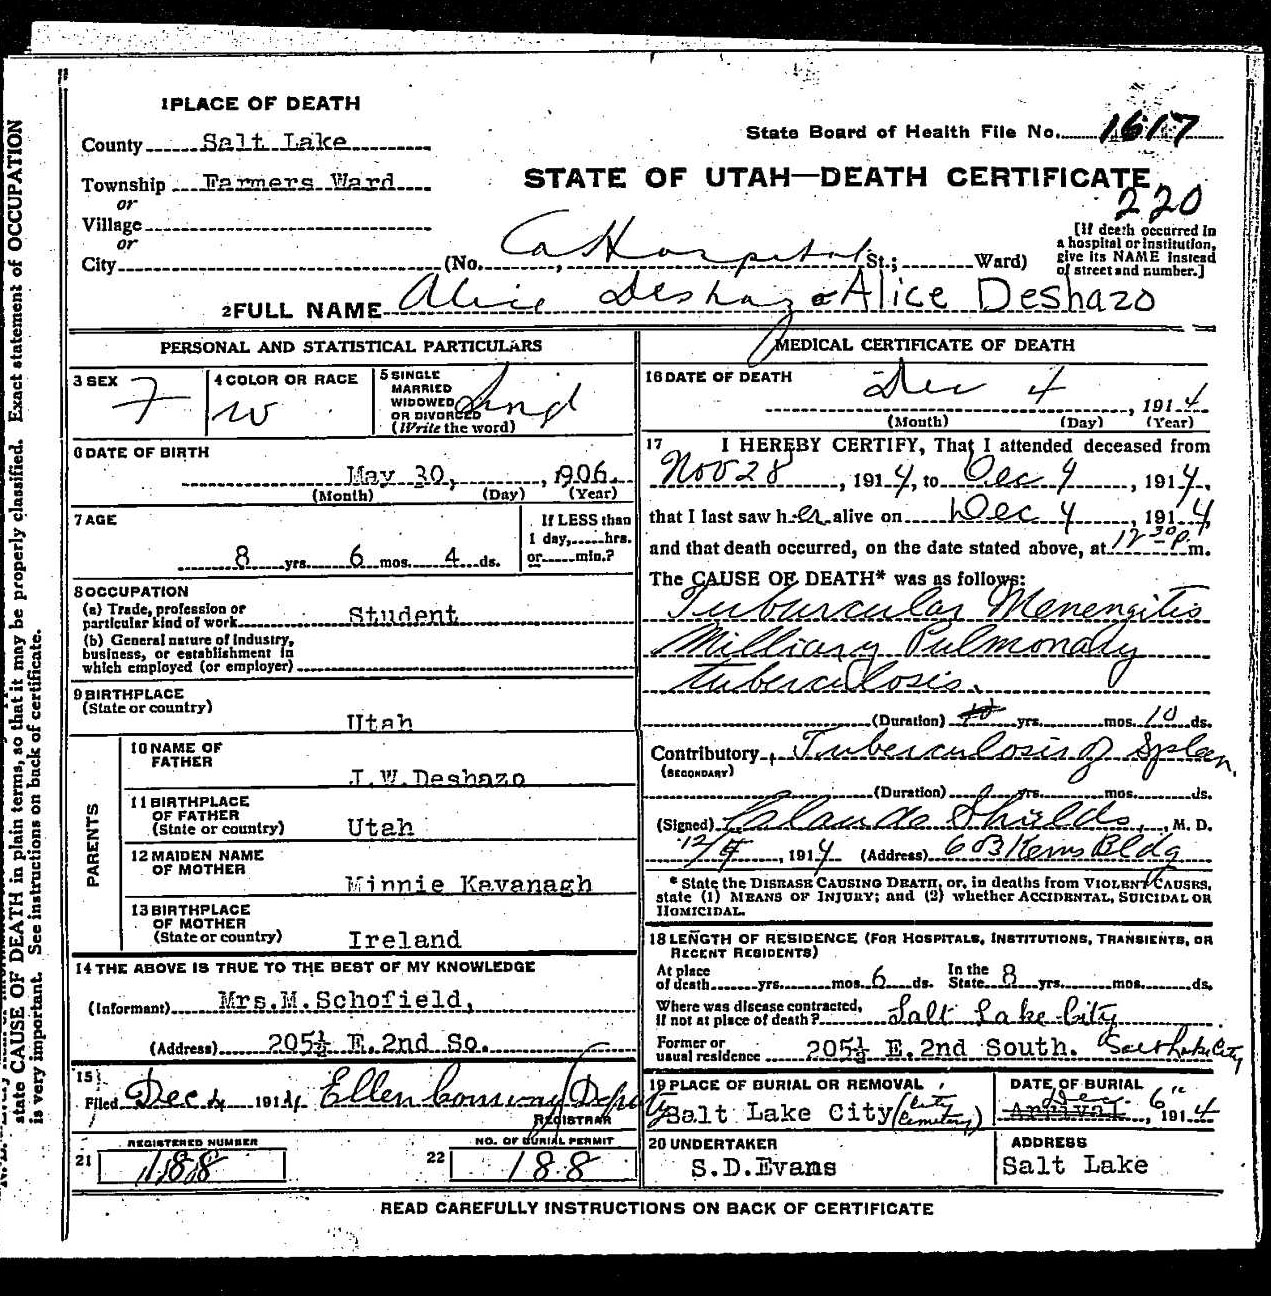 1 PLACE OF DEATH
County Salt Lake
State Board of Health File No. 1617
Township Farmers Ward
STATE OF UTAH—DEATH CERTIFICATE
or
220
Village
or
City (No. Co Hospital St.; Ward)
[If death occurred in
a hospital or institution,
give its NAME instead
of street and number.]
2 FULL NAME Alice Deshazo Alice Deshazo
PERSONAL AND STATISTICAL PARTICULARS
3 SEX F
4 COLOR OR RACE W
5 SINGLE
MARRIED
WIDOWED
OR DIVORCED
(Write the word)
6 DATE OF BIRTH
May 30, , 1906.
(Month) (Day) (Year)
7 AGE
8 yrs. 6 mos. 4 ds.
If LESS than
1 day, hrs.
or min.?
8 OCCUPATION
(a) Trade, profession or
particular kind of work Student
(b) General nature of industry,
business, or establishment in
which employed (or employer)
9 BIRTHPLACE
(State or country)
Utah
PARENTS
10 NAME OF
FATHER
J.W.Deshazo
11 BIRTHPLACE
OF FATHER
(State or country) Utah
12 MAIDEN NAME
OF MOTHER
Minnie Kavanagh
13 BIRTHPLACE
OF MOTHER
(State or country) Ireland
14 THE ABOVE IS TRUE TO THE BEST OF MY KNOWLEDGE
(Informant) Mrs.M.Schofield,
(Address) 205½ E.2nd So.
15
Filed Dec 4 1914 Ellen Conway Deputy
REGISTRAR
REGISTERED NUMBER
21 188
NO. OF BURIAL PERMIT
22 188
MEDICAL CERTIFICATE OF DEATH
16 DATE OF DEATH
Dec 4 , 1914
(Month) (Day) (Year)
17 I HEREBY CERTIFY, That I attended deceased from
Nov 28 , 1914, to Dec 4 , 1914,
that I last saw her alive on Dec 4 , 1914
and that death occurred, on the date stated above, at 12 30 P. m.
The CAUSE OF DEATH* was as follows:
Tuburcular Menengitis
Milliary Pulmonary
tuberculosis.
(Duration) yrs. mos. 10 ds.
Contributory Tuberculosis of Spleen.
(SECONDARY)
(Duration) yrs. mos. ds.
(Signed) Claude Shields, M. D.
12/4 , 1914 (Address) 603 Kerns Bldg
* State the DISEASE CAUSING DEATH, or, in deaths from VIOLENT CAUSES,
state (1) MEANS OF INJURY; and (2) whether ACCIDENTAL, SUICIDAL OR
HOMICIDAL.
18 LENGTH OF RESIDENCE (FOR HOSPITALS, INSTITUTIONS, TRANSIENTS, OR
RECENT RESIDENTS)
At place
of death yrs. mos. 6 ds.
In the
State 8 yrs. mos. ds.
Where was disease contracted,
if not at place of death? Salt Lake City
Former or
usual residence 205½ E.2nd South. Salt Lake City
19 PLACE OF BURIAL OR REMOVAL
Salt Lake City (City Cemetery)
DATE OF BURIAL
Arrival Dec. 6" 1914
20 UNDERTAKER
S.D.Evans
ADDRESS
Salt Lake
READ CAREFULLY INSTRUCTIONS ON BACK OF CERTIFICATE
state CAUSE OF DEATH in plain terms, so that it may be properly classified. Exact statement of OCCUPATION
is very important. See instructions on back of certificate.